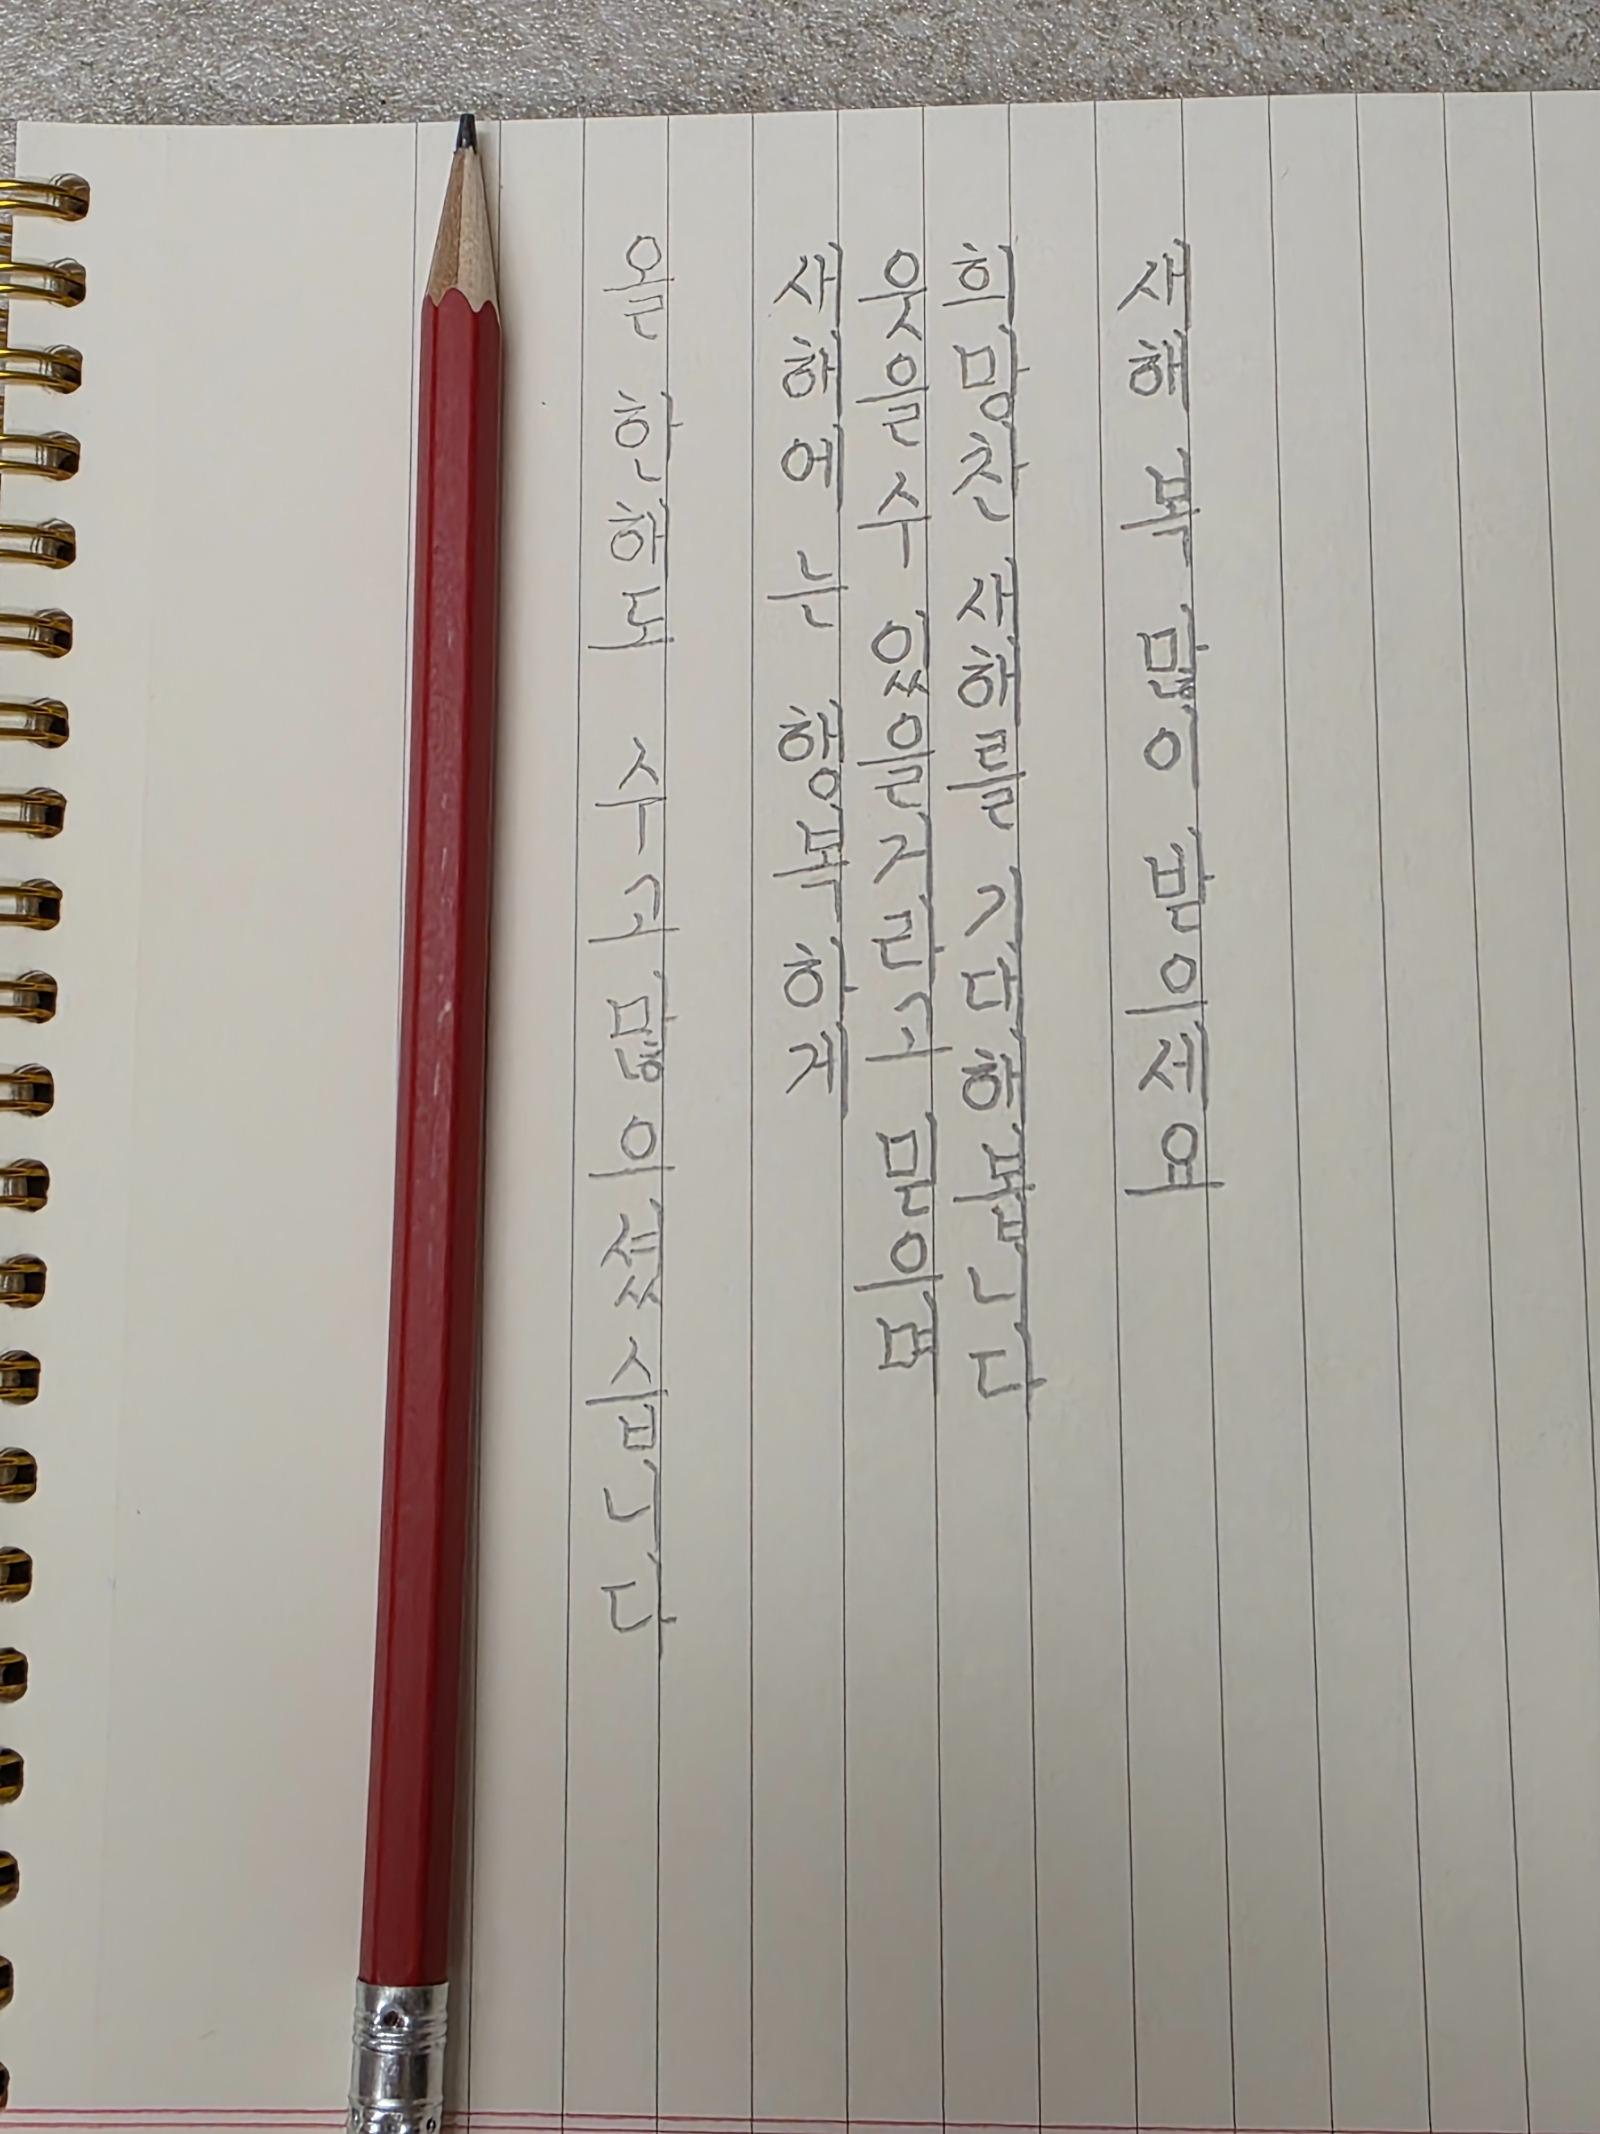 올 한해도 수고 많으셨습니다
새해에는 행복하게
웃을 수 있을거라고 믿으며
희망찬 새해를 기대해봅니다
새해 복 많이 받으세요